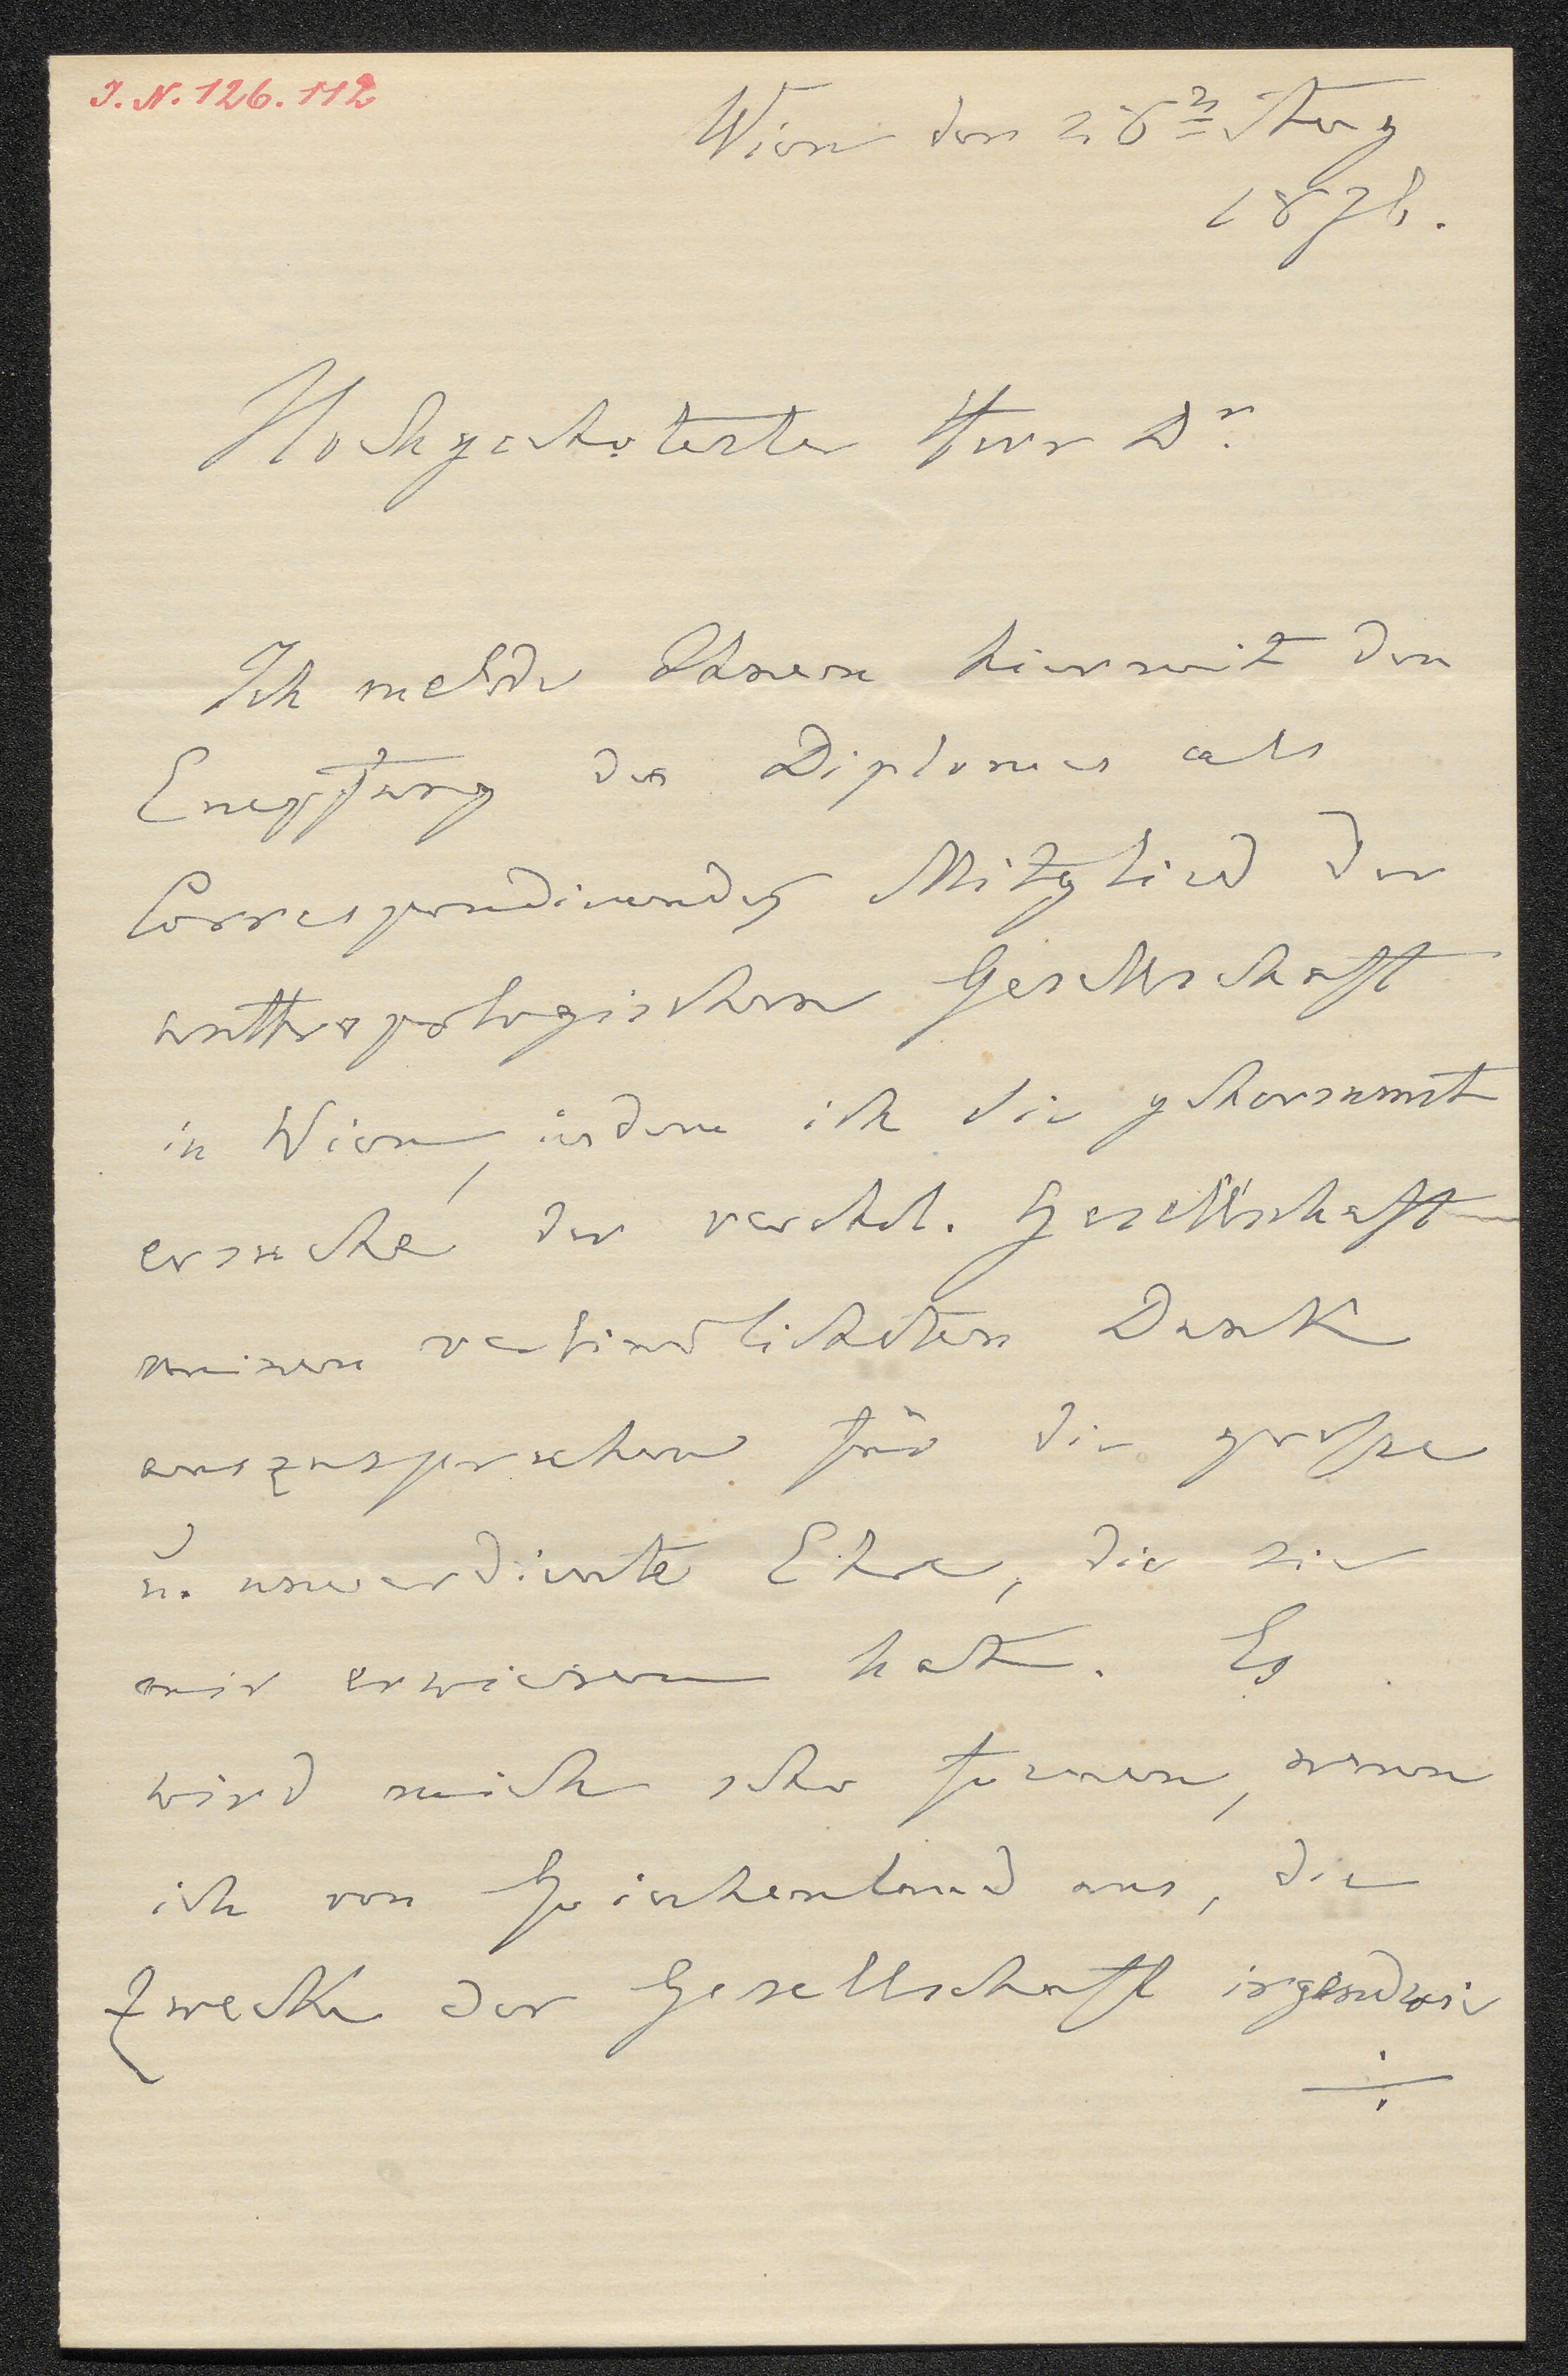 I.N. 126.112
Wien den 28n
1876.
Hochgeehrtester Herr Dr.
Ich melde Ihnen hiermit den
Empfang des Diplomes als
Correspondirendes Mitglied der
anthropologischen Gesellschaft
in Wien, indem ich Sie gehorsamst
ersuche der verehrl. Gesellschaft
meinen verbindlichsten Dank
auszusprechen für die große
u. unverdiente Ehre, die sie
mir erwiesen hat. Es
wird mich sehr freuen, wenn
ich von Griechenland aus, die
Zwecke der Gesellschaft irgendwie